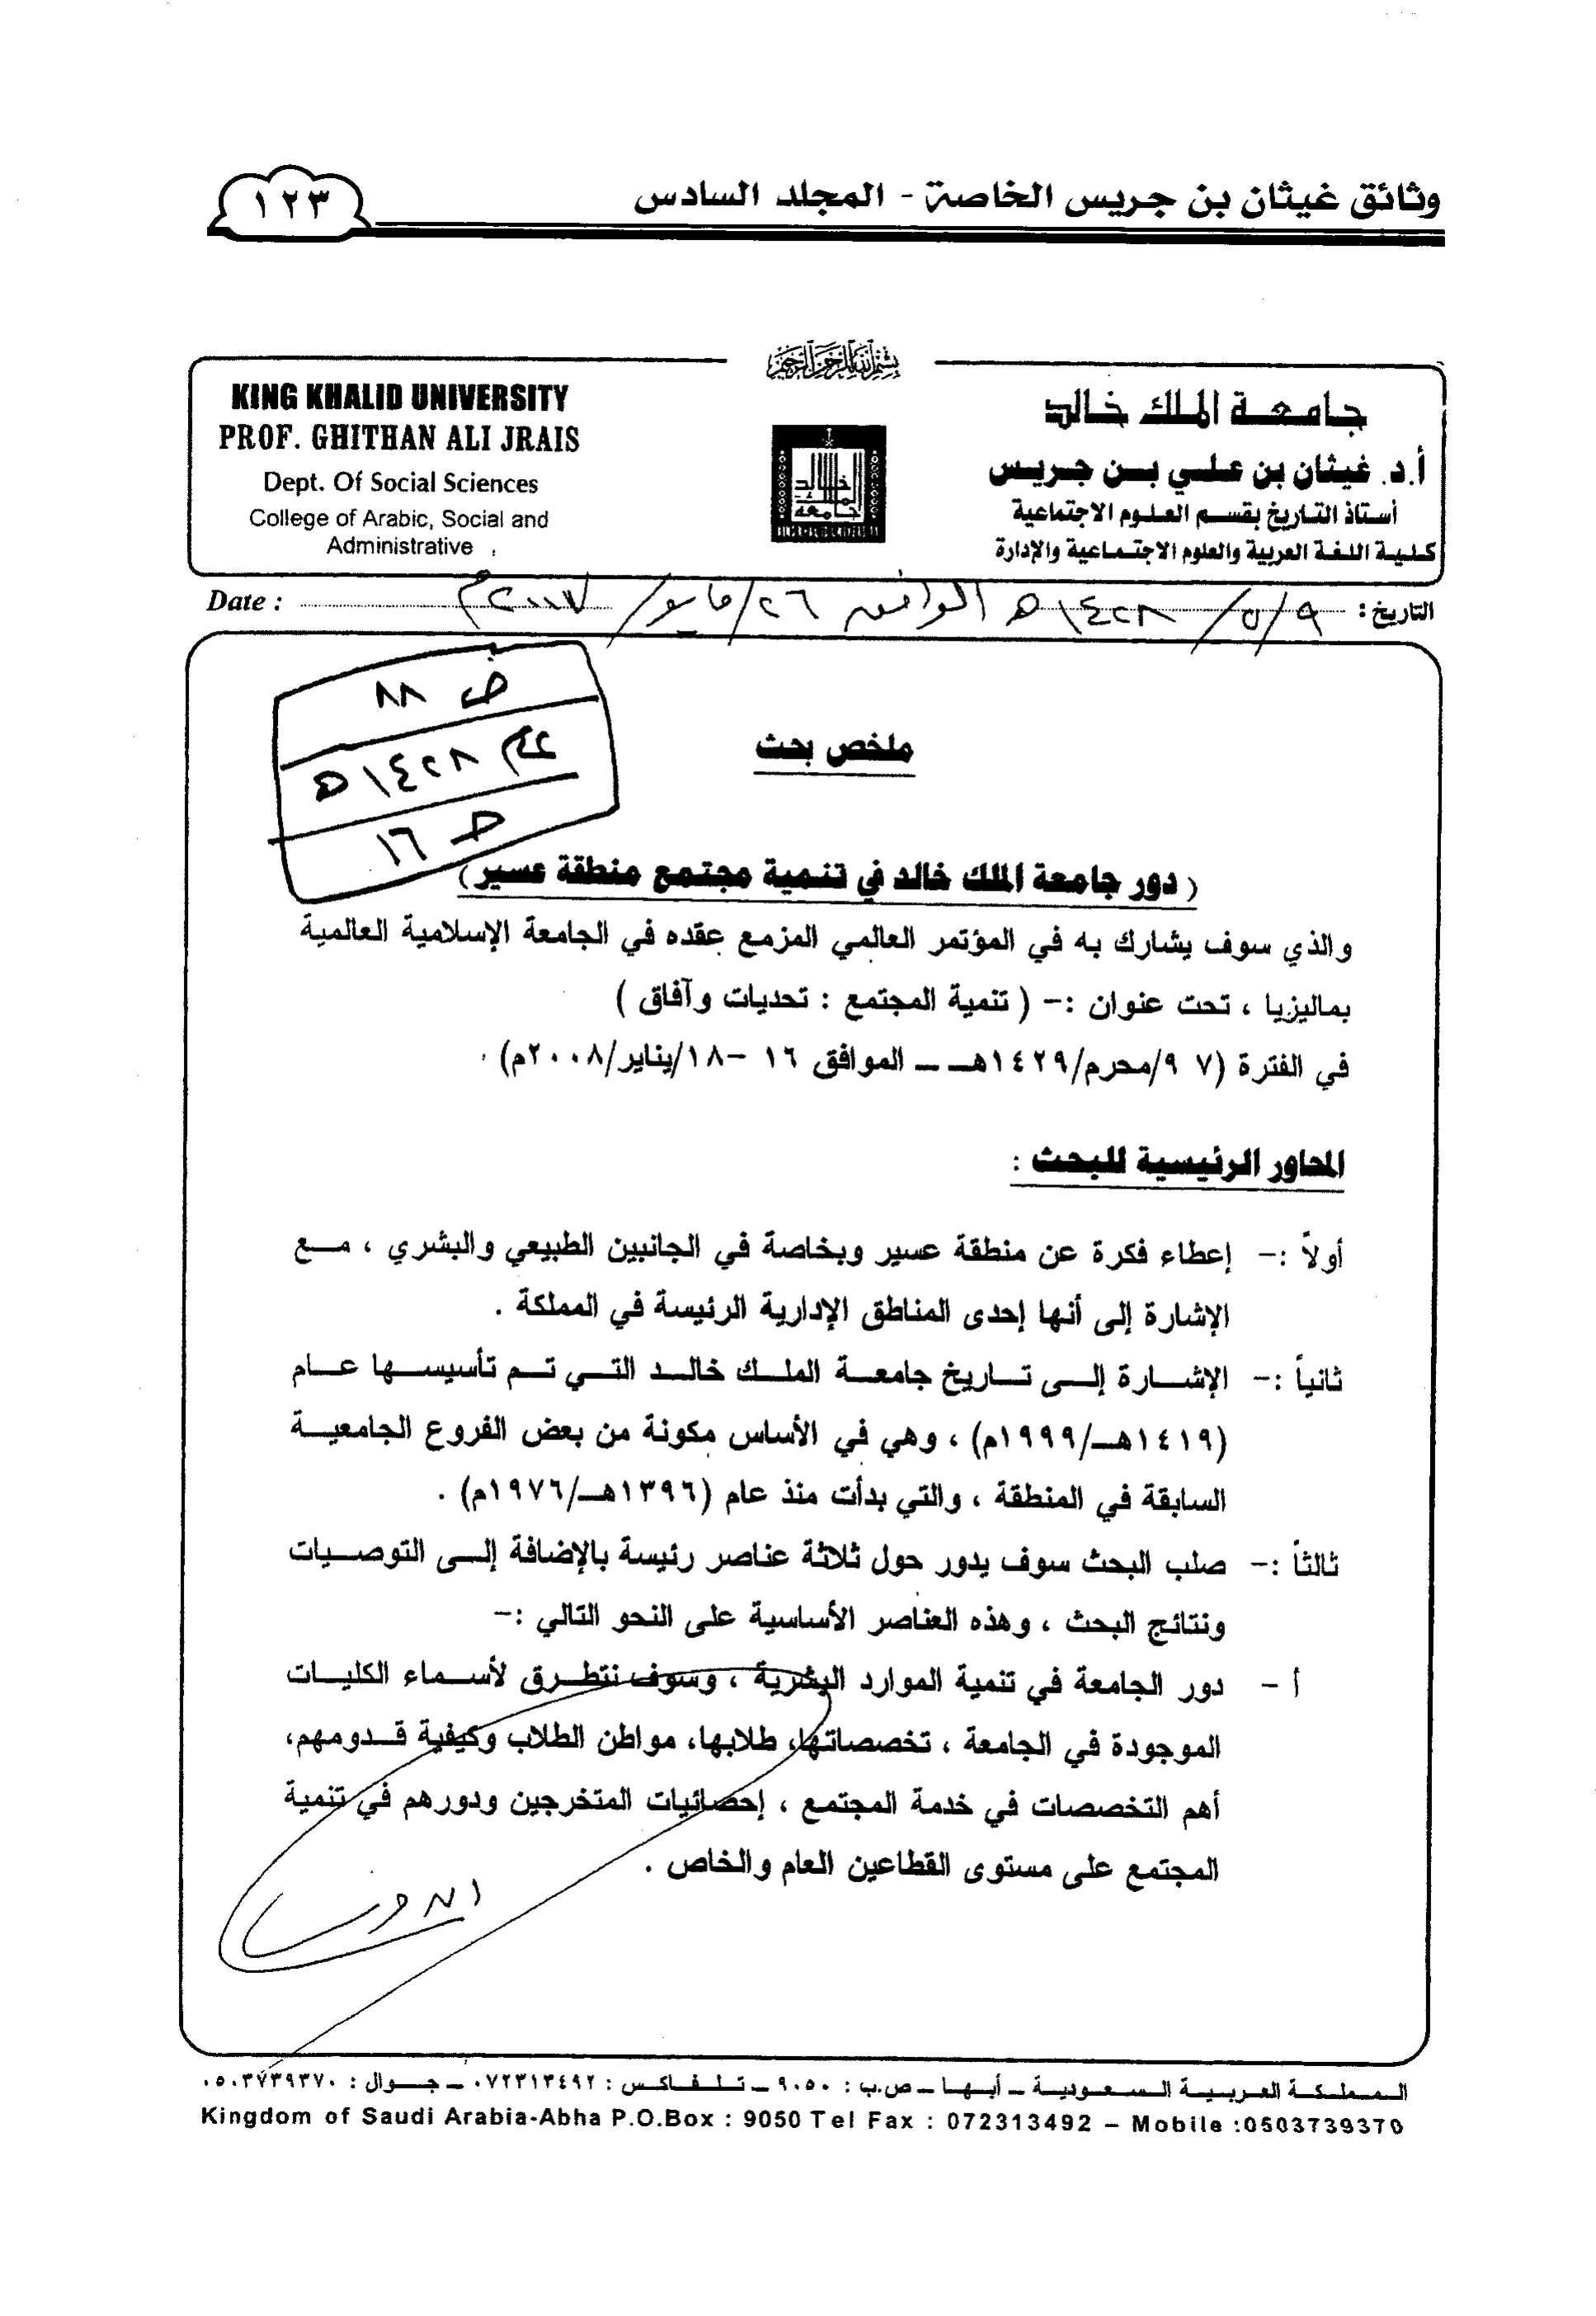 وثائق غيثان بن جريس الخاصة - المجلد السادس
١٢٣
بسم الله الرحمن الرحيم
KING KHALID UNIVERSITY
PROF. GHITHAN ALI JRAIS
Dept. Of Social Sciences
College of Arabic, Social and
Administrative
جامعة الملك خالد
أ.د. غيثان بن علي بن جريس
أستاذ التاريخ بقسم العلوم الاجتماعية
كلية اللغة العربية والعلوم الاجتماعية والإدارة
التاريخ: ٩/٥/١٤٢٨هـ الموافق ٢٦/مايو/٢٠٠٧م
Date :
ص ٨٨
عام ١٤٢٨هـ
حـ ١٦
ملخص بحث
( دور جامعة الملك خالد في تنمية مجتمع منطقة عسير)
والذي سوف يشارك به في المؤتمر العالمي المزمع عقده في الجامعة الإسلامية العالمية
بماليزيا ، تحت عنوان :- ( تنمية المجتمع : تحديات وآفاق )
في الفترة (٧ ٩/محرم/١٤٢٩هـ ــ الموافق ١٦ -١٨/يناير/٢٠٠٨م) .
المحاور الرئيسية للبحث :
أولاً :- إعطاء فكرة عن منطقة عسير وبخاصة في الجانبين الطبيعي والبشري ، مع
الإشارة إلى أنها إحدى المناطق الإدارية الرئيسة في المملكة .
ثانياً :- الإشارة إلى تاريخ جامعة الملك خالد التي تم تأسيسها عام
(١٤١٩هـ/١٩٩٩م) ، وهي في الأساس مكونة من بعض الفروع الجامعية
السابقة في المنطقة ، والتي بدأت منذ عام (١٣٩٦هـ/١٩٧٦م) .
ثالثاً :- صلب البحث سوف يدور حول ثلاثة عناصر رئيسة بالإضافة إلى التوصيات
ونتائج البحث ، وهذه العناصر الأساسية على النحو التالي :-
أ - دور الجامعة في تنمية الموارد البشرية ، وسوف نتطرق لأسماء الكليات
الموجودة في الجامعة ، تخصصاتها، طلابها، مواطن الطلاب وكيفية قدومهم،
أهم التخصصات في خدمة المجتمع ، إحصائيات المتخرجين ودورهم في تنمية
المجتمع على مستوى القطاعين العام والخاص .
المملكة العربية السعودية – أبها – ص.ب : ٩٠٥٠ – تلفاكس : ٠٧٢٣١٣٤٩٢ – جوال : ٠٥٠٣٧٣٩٣٧٠
Kingdom of Saudi Arabia-Abha P.O.Box : 9050 Tel Fax : 072313492 – Mobile :0503739370